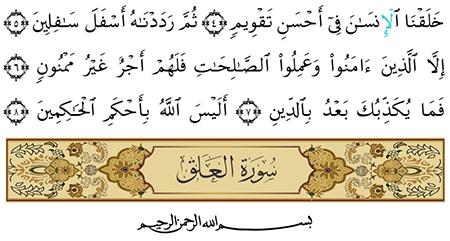 خَلَقْنَا ٱلْإِنسَـٰنَ فِىٓ أَحْسَنِ تَقْوِيمٍ ﴿٤﴾ ثُمَّ رَدَدْنَـٰهُ أَسْفَلَ سَـٰفِلِينَ ﴿٥﴾
إِلَّا ٱلَّذِينَ ءَامَنُوا۟ وَعَمِلُوا۟ ٱلصَّـٰلِحَـٰتِ فَلَهُمْ أَجْرٌ غَيْرُ مَمْنُونٍ ﴿٦﴾
فَمَا يُكَذِّبُكَ بَعْدُ بِٱلدِّينِ ﴿٧﴾ أَلَيْسَ ٱللَّهُ بِأَحْكَمِ ٱلْحَـٰكِمِينَ ﴿٨﴾
سورة العلق
بسم الله الرحمن الرحيم